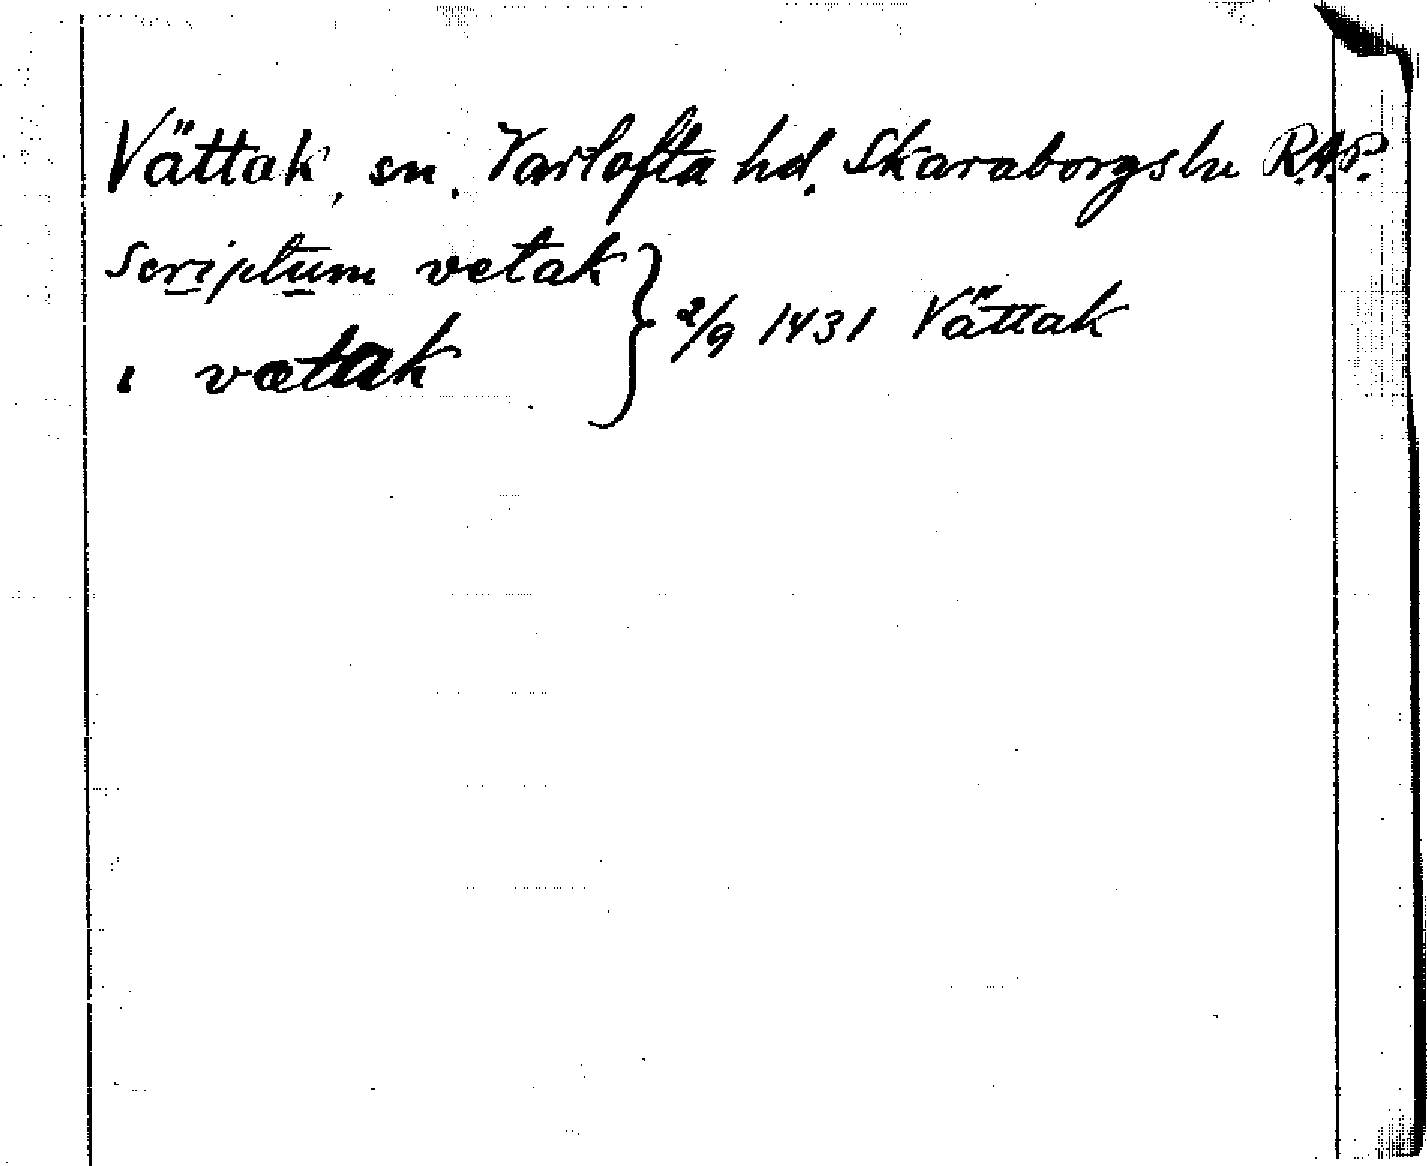 Vättak, sn. Vartofta hd. Skaraborgs län R.A.P.
scriptum vetak
i vætak } 2/9 1431 Vättak